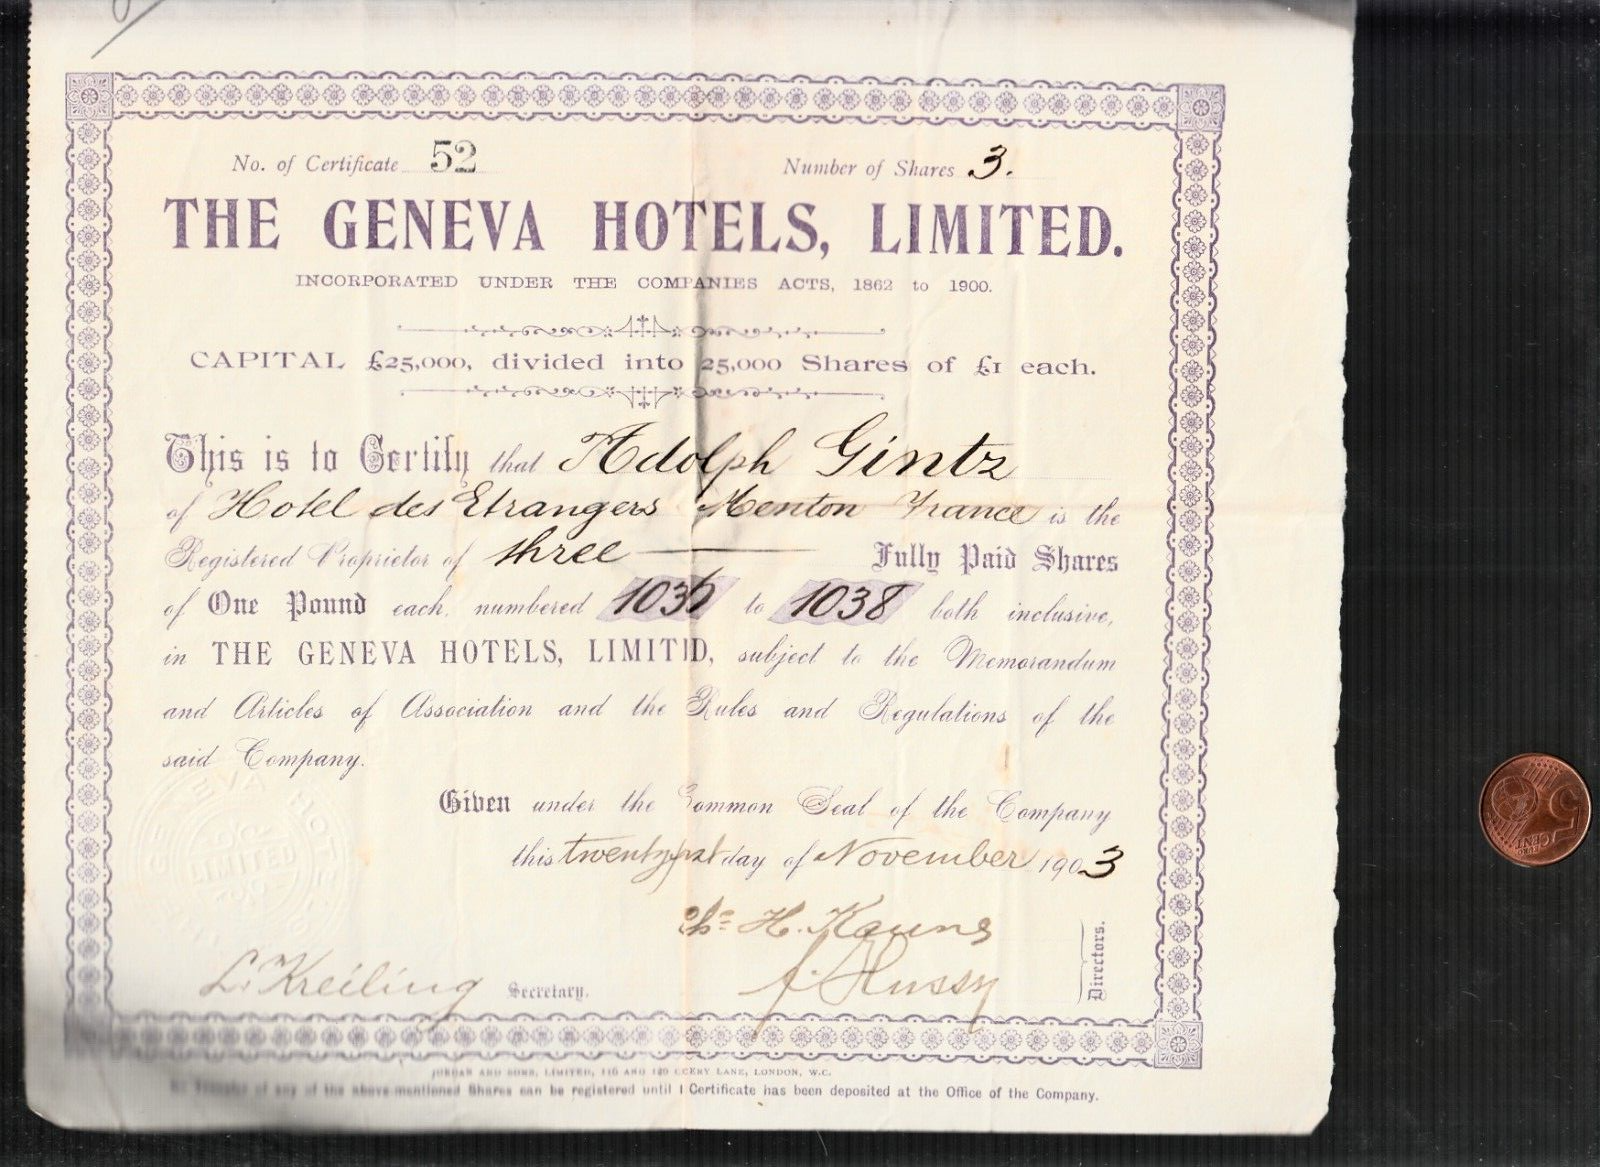 No. of Certificate 52 Number of Shares 3.
THE GENEVA HOTELS, LIMITED.
INCORPORATED UNDER THE COMPANIES ACTS, 1862 to 1900.
CAPITAL £25,000, divided into 25,000 Shares of £1 each.
This is to Certify that Adolph Gintz
of Hotel des Etrangers Menton France is the
Registered Proprietor of three Fully Paid Shares
of One Pound each, numbered 1036 to 1038 both inclusive,
in THE GENEVA HOTELS, LIMITED, subject to the Memorandum
and Articles of Association and the Rules and Regulations of the
said Company.
Given under the Common Seal of the Company
this twenty first day of November 1903
LIMITED
H.
L. Kreiling Secretary.
J. Hussy
Directors.
JORDAN AND SONS, LIMITED, 116 AND 120 CERY LANE, LONDON, W.C.
No Transfer of any of the above-mentioned Shares can be registered until Certificate has been deposited at the Office of the Company.
5
CENT
EURO